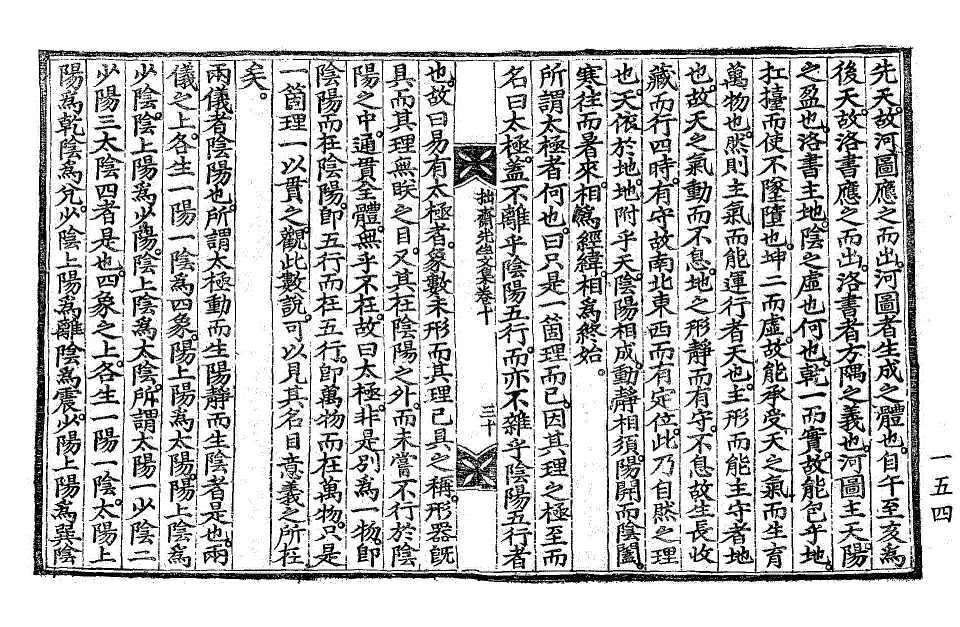 先天。故河圖應之而出。河圖者生成之體也。自午至亥為
後天。故洛書應之而出。洛書者方隅之義也。河圖主天。陽
之盈也。洛書主地。陰之虛也。何也。乾一而實。故能包乎地。
扛擡而使不墜墮也。坤二而虛。故能承受天之氣而生育
萬物也。然則主氣而能運行者天也。主形而能主守者地
也。故天之氣動而不息。地之形靜而有守。不息故生長收
藏而行四時。有守故南北東西而有定位。此乃自然之理
也。天依於地。地附乎天。陰陽相成。動靜相須。陽開而陰闔。
寒往而暑來。相為經緯。相為終始。
所謂太極者何也。曰只是一箇理而已。因其理之極至而
名曰太極。蓋不離乎陰陽五行。而亦不雜乎陰陽五行者
拙齋先生文集卷十
三十
也。故曰易有太極者。象數未形而其理已具之稱。形器旣
具而其理無眹之目。又其在陰陽之外。而未嘗不行於陰
陽之中。通貫全體。無乎不在。故曰太極。非是別為一物。卽
陰陽而在陰陽。卽五行而在五行。卽萬物而在萬物。只是
一箇理一以貫之。觀此數說。可以見其名目意義之所在
矣。
兩儀者陰陽也。所謂太極動而生陽靜而生陰者是也。兩
儀之上。各生一陽一陰為四象。陽上陽為太陽。陽上陰為
少陰。陰上陽為少陽。陰上陰為太陰。所謂太陽一少陰二
少陽三太陰四者是也。四象之上。各生一陽一陰。太陽上
陽為乾陰為兌。少陰上陽為離陰為震。少陽上陽為巽陰
一五四